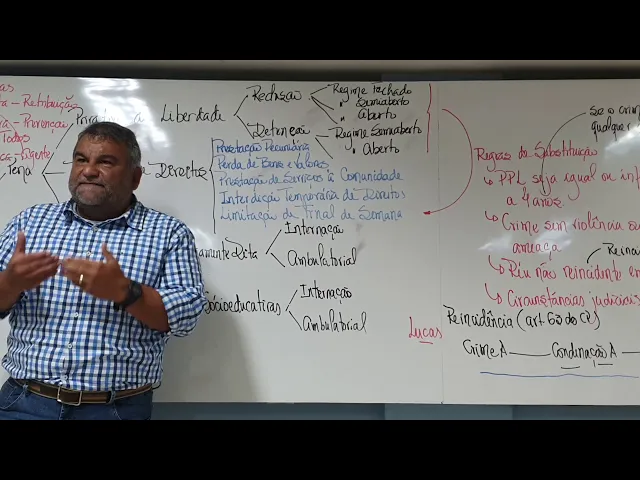 as
ta - Retribuição
- Prevenção
Todos
ca - Agente
Pena
a Liberdade
Reclusão
Regime Fechado
" Semiaberto
" Aberto
Detenção
Regime Semiaberto
" Aberto
Direitos
Prestação Pecuniária
Perda de Bens e Valores
Prestação de Serviços à Comunidade
Interdição Temporária de Direitos
Limitação de Final de Semana
amente Dita
Internação
Ambulatorial
Sócioeducativas
Internação
Ambulatorial
Lucas
Se o crim
qualquer
Regras de Substituição
PPL seja igual ou inf
a 4 anos.
Crime sem violência
ameaça
Reina
Réu não reincidente em
Circunstâncias judiciais
Reincidência (art. 63 do CP)
Crime A — Condenação A —